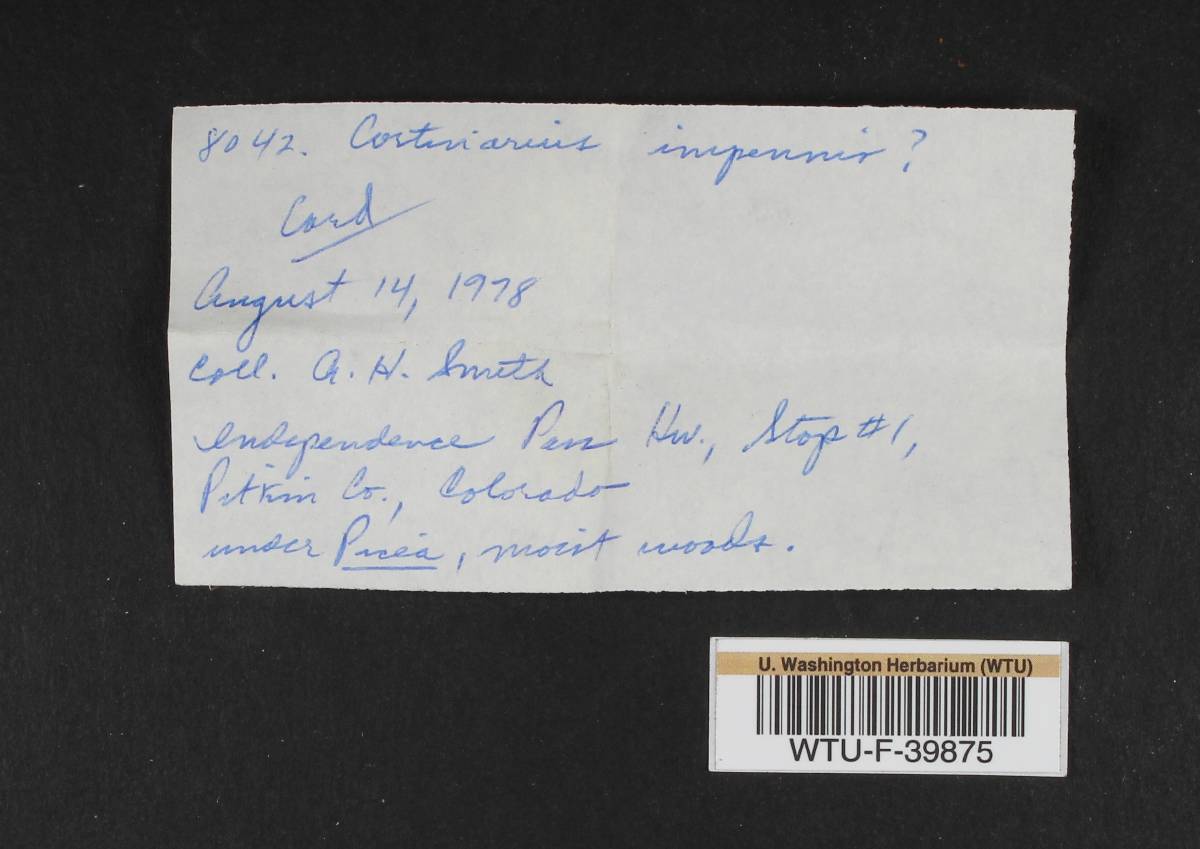 8042. Cortinarius impennis?
Card
August 14, 1978
Coll. A. H. Smith
Independence Pass Hw., Stop #1,
Pitkin Co., Colorado
under Picea, moist woods.
U. Washington Herbarium (WTU)
WTU-F-39875